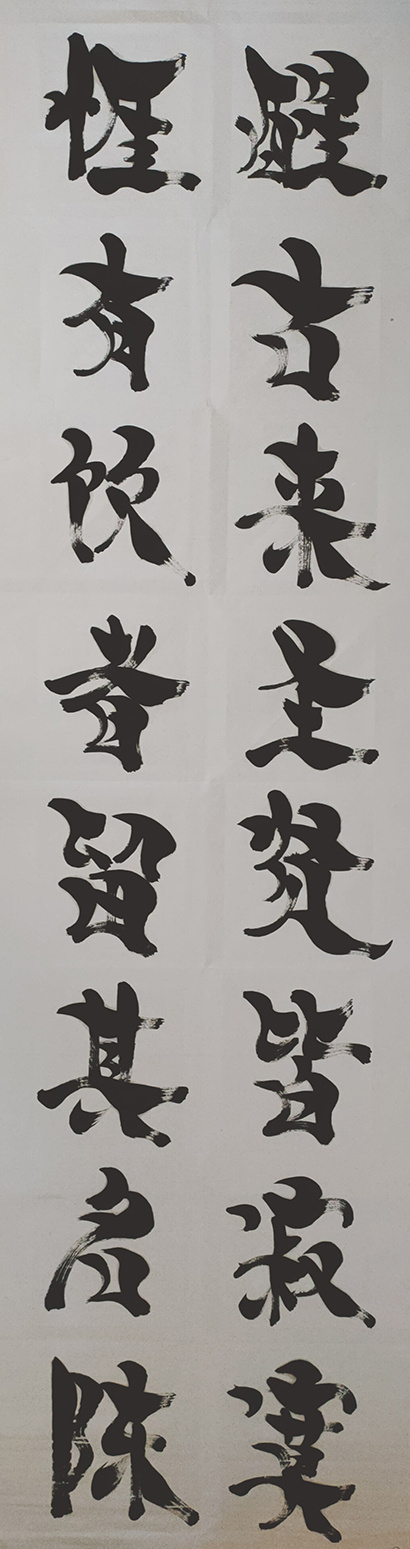 醒古来圣贤皆寂寞
惟有饮者留其名陈